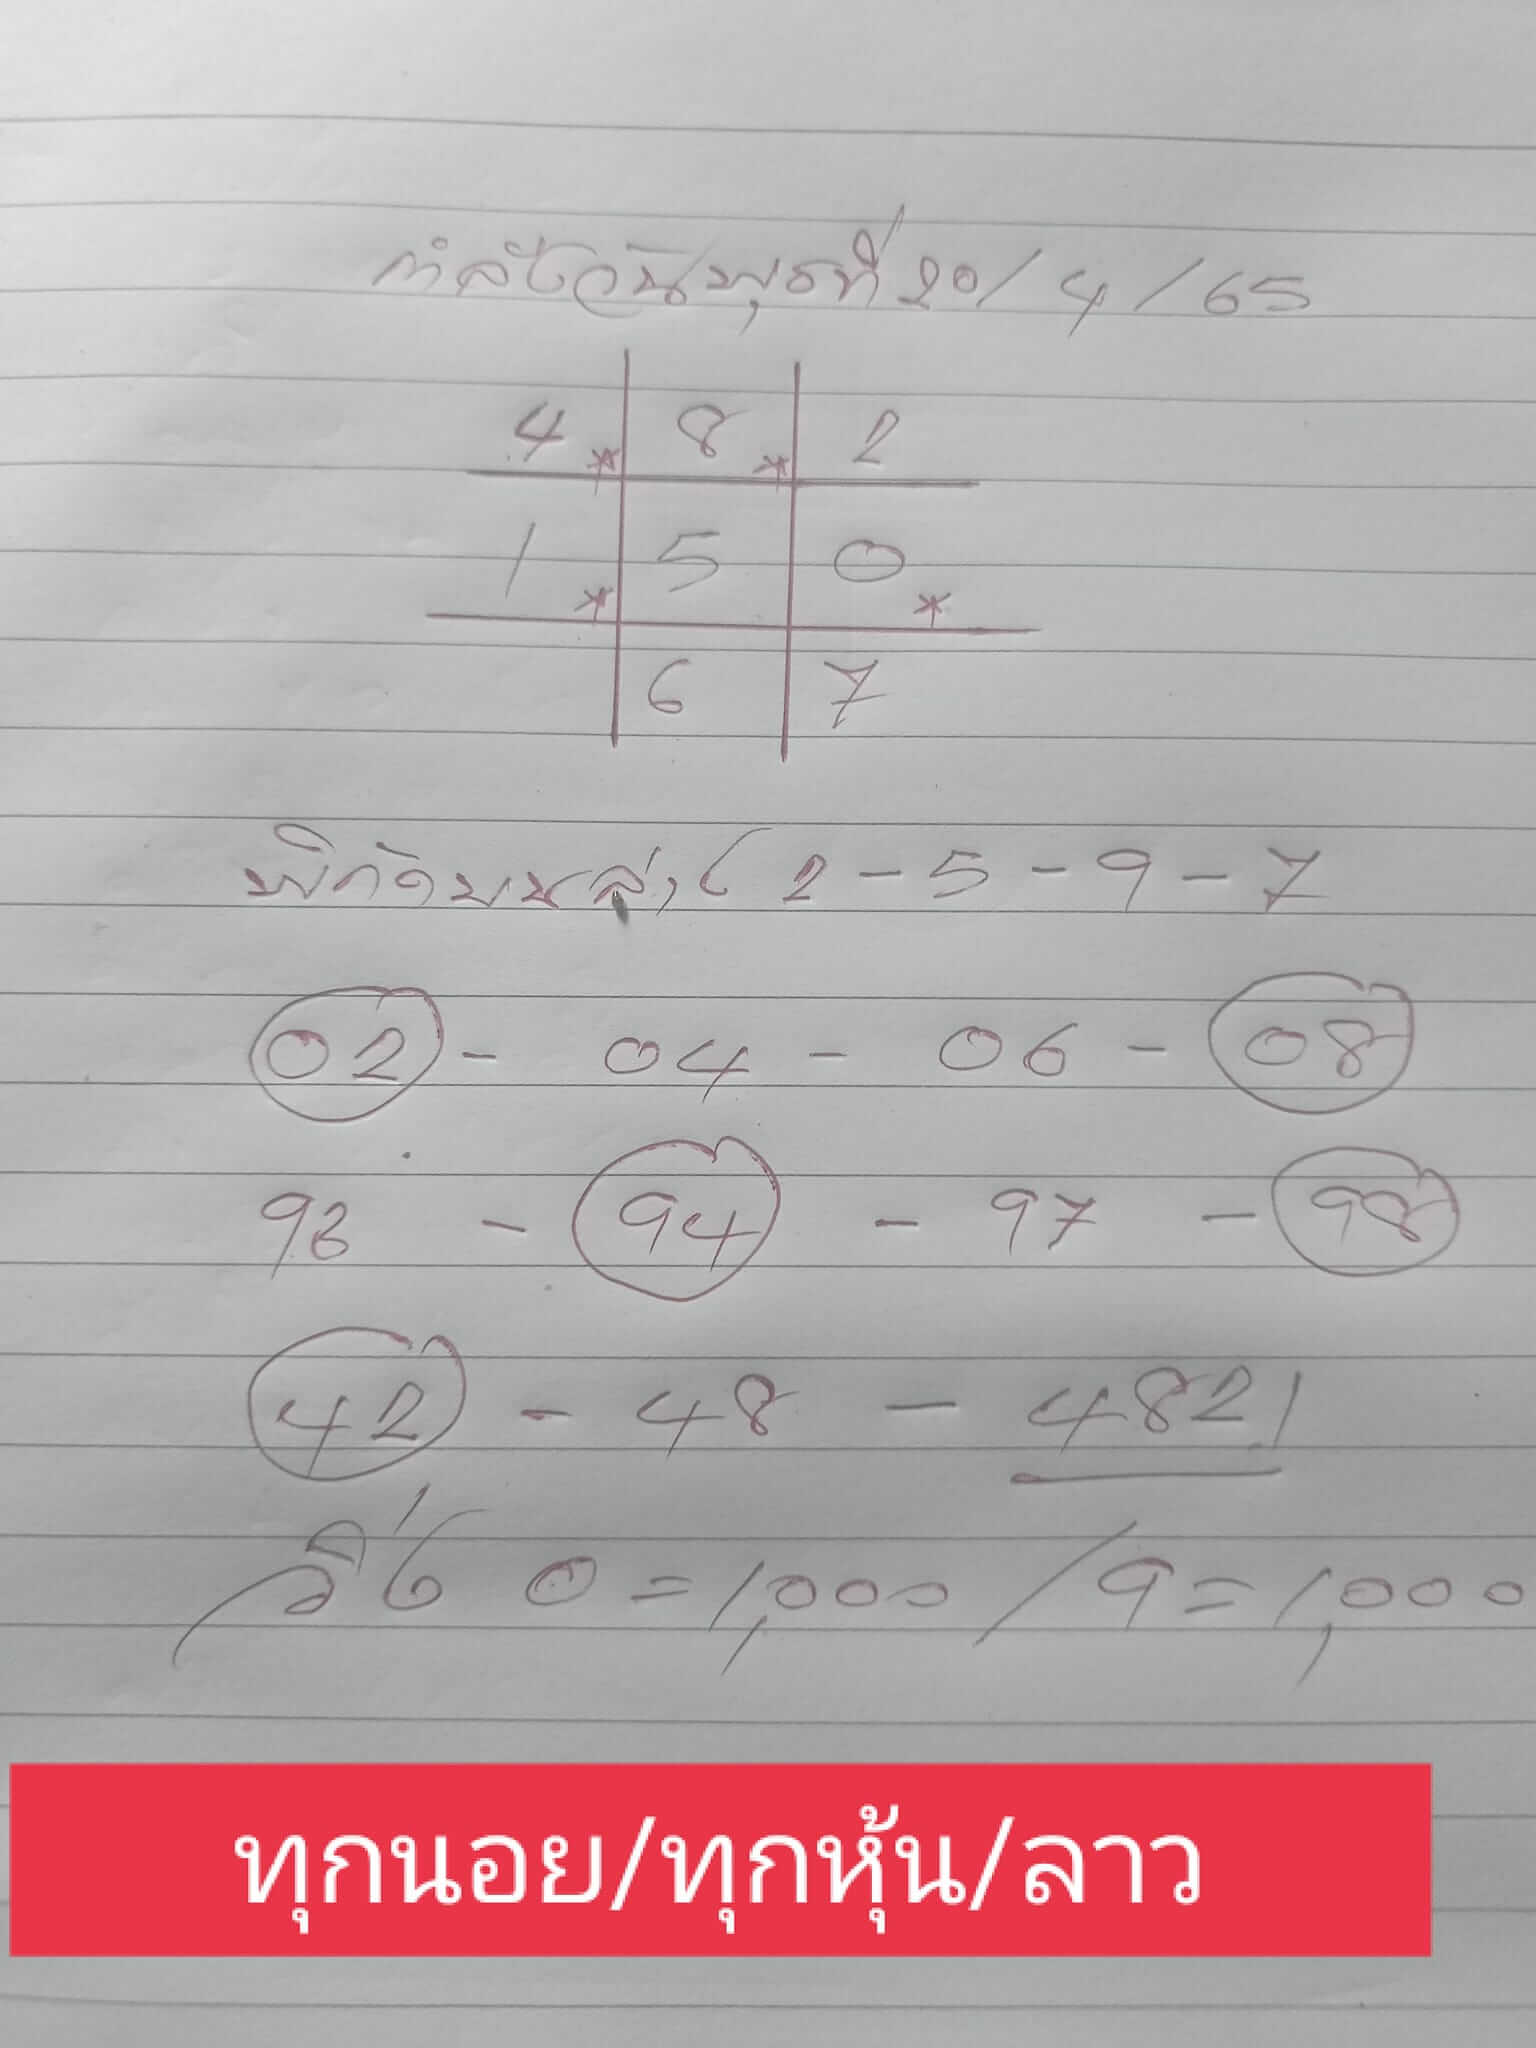 กำลังวันพุธที่ 20/4/65
4 * 8 * 2
1 * 5 0 *
6 7
พิกัดบนล่าง 2-5-9-7
02 - 04 - 06 - 08
93 - 94 - 97 - 98
42 - 48 - 4821
วิ่ง 0=1,000/9=1,000
ทุกนอย/ทุกหุ้น/ลาว